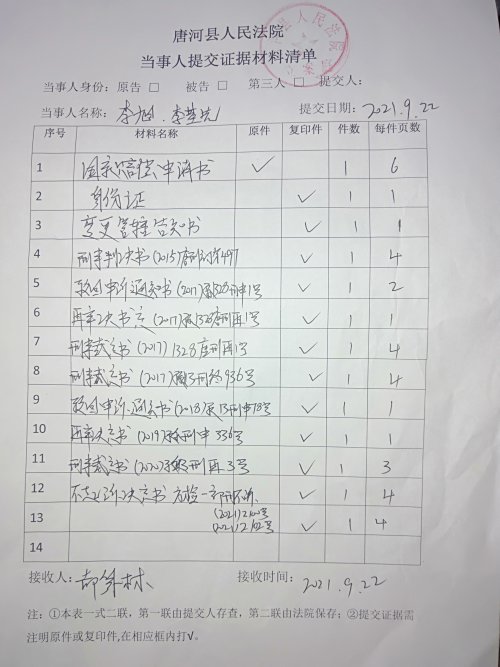 唐河县人民法院
当事人提交证据材料清单
当事人身份：原告 □ 被告 □ 第三人 □ 提交人：
当事人名称： 提交日期：2021.9.22
序号 材料名称 原件 复印件 件数 每件页数
1 国家赔偿申请书 ✓ 1 6
2 身份证 ✓ 1 1
3 变更管辖告知书 ✓ 1 1
4 刑事判决书(2015)唐刑初字497 ✓ 1 4
5 驳回申诉通知书(2017)豫1328刑申1号 ✓ 1 2
6 再审决定书 (2017)豫1328刑再1号 ✓ 1 1
7 刑事裁定书(2017)1328唐刑再1号 ✓ 1 4
8 刑事裁定书(2017)豫13刑终936号 ✓ 1 4
9 驳回申诉通知书(2018)豫13刑申78号 ✓ 1 1
10 再审决定书(2019)豫刑申336号 ✓ 1 1
11 刑事裁定书(2020)豫13刑再3号 ✓ 1 3
12 不起诉决定书 ✓ 1 4
13 (2021)Z100号 (2021)Z102号 ✓ 1 4
14
接收人： 接收时间：2021.9.22
注：①本表一式二联，第一联由提交人存查，第二联由法院保存；②提交证据需
注明原件或复印件,在相应框内打√。